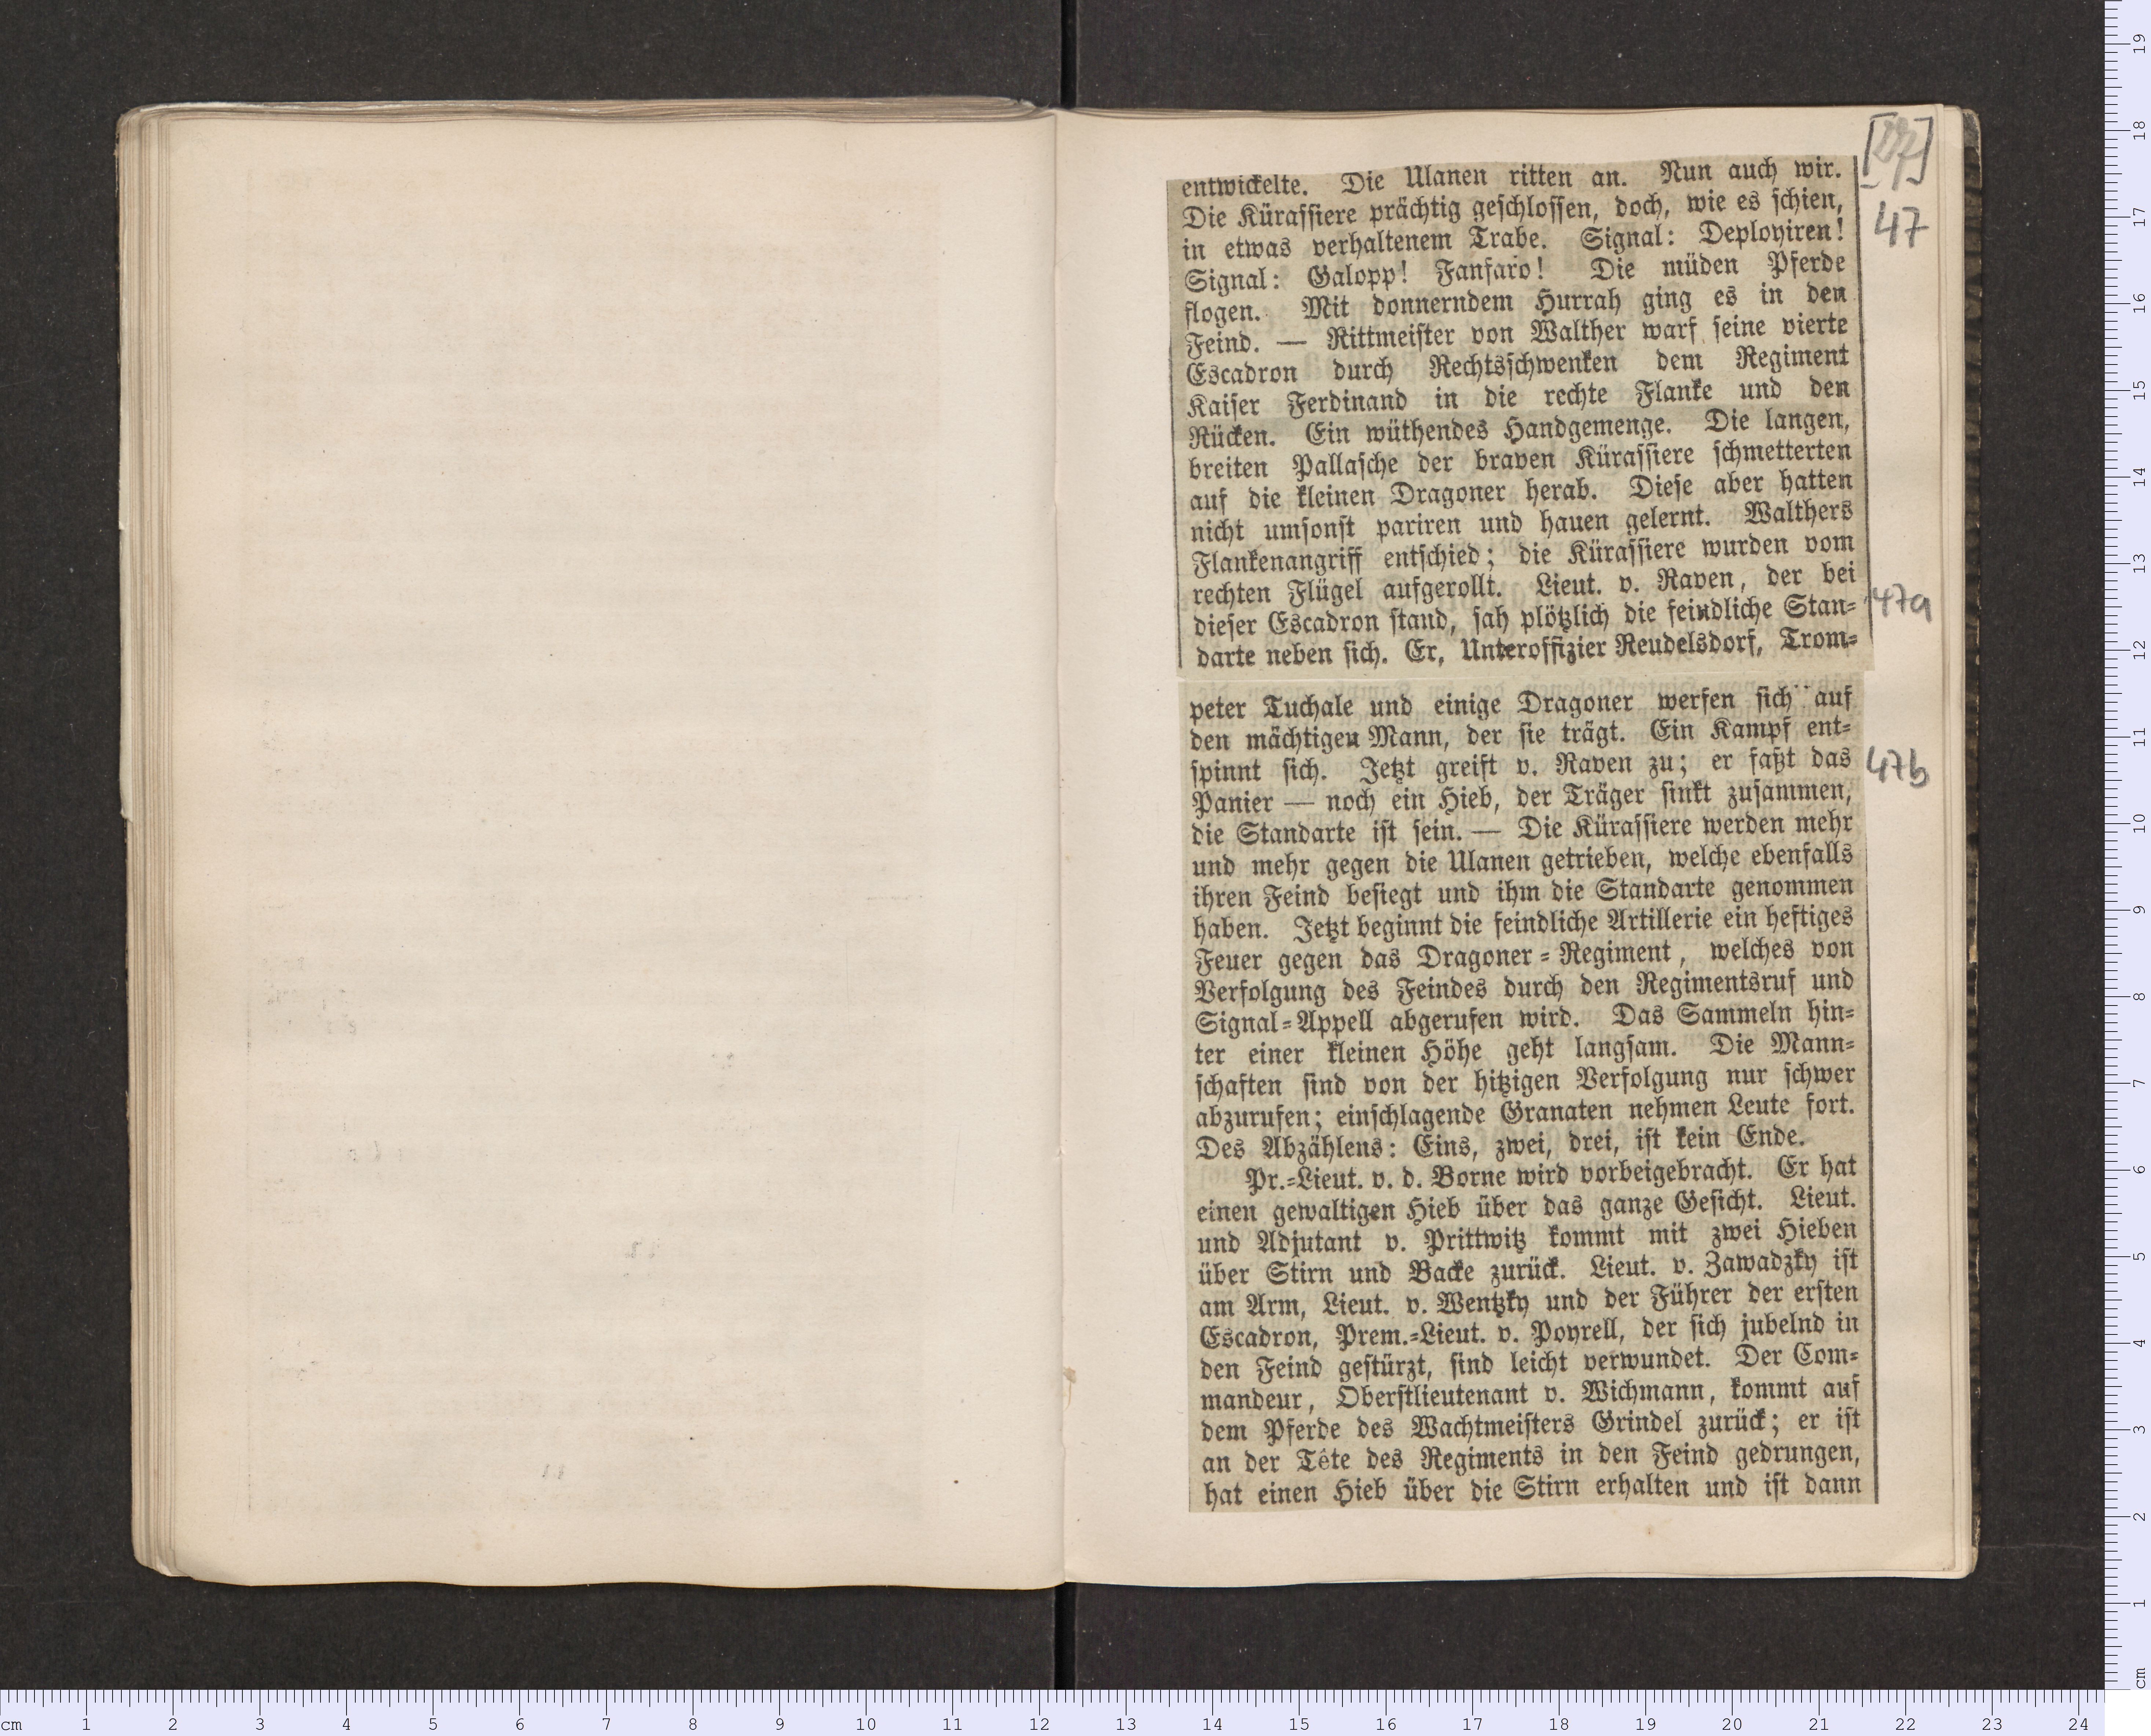 47
entwickelte. Die Ulanen ritten an. Nun auch wir.
Die Kürassiere prächtig geschlossen, doch, wie es schien,
in etwas verhaltenem Trabe. Signal: Deployiren!
Signal: Galopp! Fanfaro! Die müden Pferde
flogen. Mit donnerndem Hurrah ging es in den
Feind. — Rittmeister von Walther warf seine vierte
Escadron durch Rechtsschwenken dem Regiment
Kaiser Ferdinand in die rechte Flanke und den
Rücken. Ein wüthendes Handgemenge. Die langen,
breiten Pallasche der braven Kürassiere schmetterten
auf die kleinen Dragoner herab. Diese aber hatten
nicht umsonst pariren und hauen gelernt. Walthers
Flankenangriff entschied; die Kürassiere wurden vom
rechten Flügel aufgerollt. Lieut. v. Raven, der bei
dieser Escadron stand, sah plötzlich die feindliche Stan-
47a
darte neben sich. Er, Unteroffizier Reudelsdorf, Trom-
peter Tuchale und einige Dragoner werfen sich auf
den mächtigen Mann, der sie trägt. Ein Kampf ent-
spinnt sich. Jetzt greift v. Raven zu; er faßt das
47b
Panier — noch ein Hieb, der Träger sinkt zusammen,
die Standarte ist sein. — Die Kürassiere werden mehr
und mehr gegen die Ulanen getrieben, welche ebenfalls
ihren Feind besiegt und ihm die Standarte genommen
haben. Jetzt beginnt die feindliche Artillerie ein heftiges
Feuer gegen das Dragoner-Regiment, welches von
Verfolgung des Feindes durch den Regimentsruf und
Signal-Appell abgerufen wird. Das Sammeln hin-
ter einer kleinen Höhe geht langsam. Die Mann-
schaften sind von der hitzigen Verfolgung nur schwer
abzurufen; einschlagende Granaten nehmen Leute fort.
Des Abzählens: Eins, zwei, drei, ist kein Ende.
Pr.-Lieut. v. d. Borne wird vorbeigebracht. Er hat
einen gewaltigen Hieb über das ganze Gesicht. Lieut.
und Adjutant v. Prittwitz kommt mit zwei Hieben
über Stirn und Backe zurück. Lieut. v. Zawadzky ist
am Arm, Lieut. v. Wentzky und der Führer der ersten
Escadron, Prem.-Lieut. v. Poyrell, der sich jubelnd in
den Feind gestürzt, sind leicht verwundet. Der Com-
mandeur, Oberstlieutenant v. Wichmann, kommt auf
dem Pferde des Wachtmeisters Grindel zurück; er ist
an der Tête des Regiments in den Feind gedrungen,
hat einen Hieb über die Stirn erhalten und ist dann
cm 1 2 3 4 5 6 7 8 9 10 11 12 13 14 15 16 17 18 19 20 21 22 23 24
cm 1 2 3 4 5 6 7 8 9 10 11 12 13 14 15 16 17 18 19